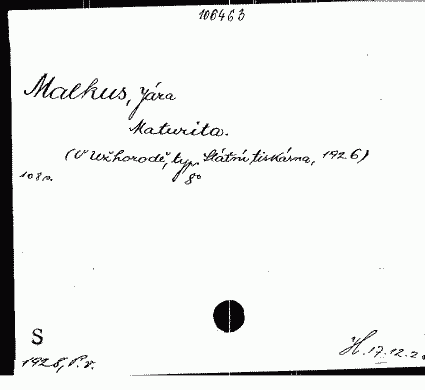 106463
Malkus, Jára
Maturita.
(V Užhorodě, typ. Státní tiskárna, 1926)
108 s. 8°
S
1928, P.v. H. 17.12.2